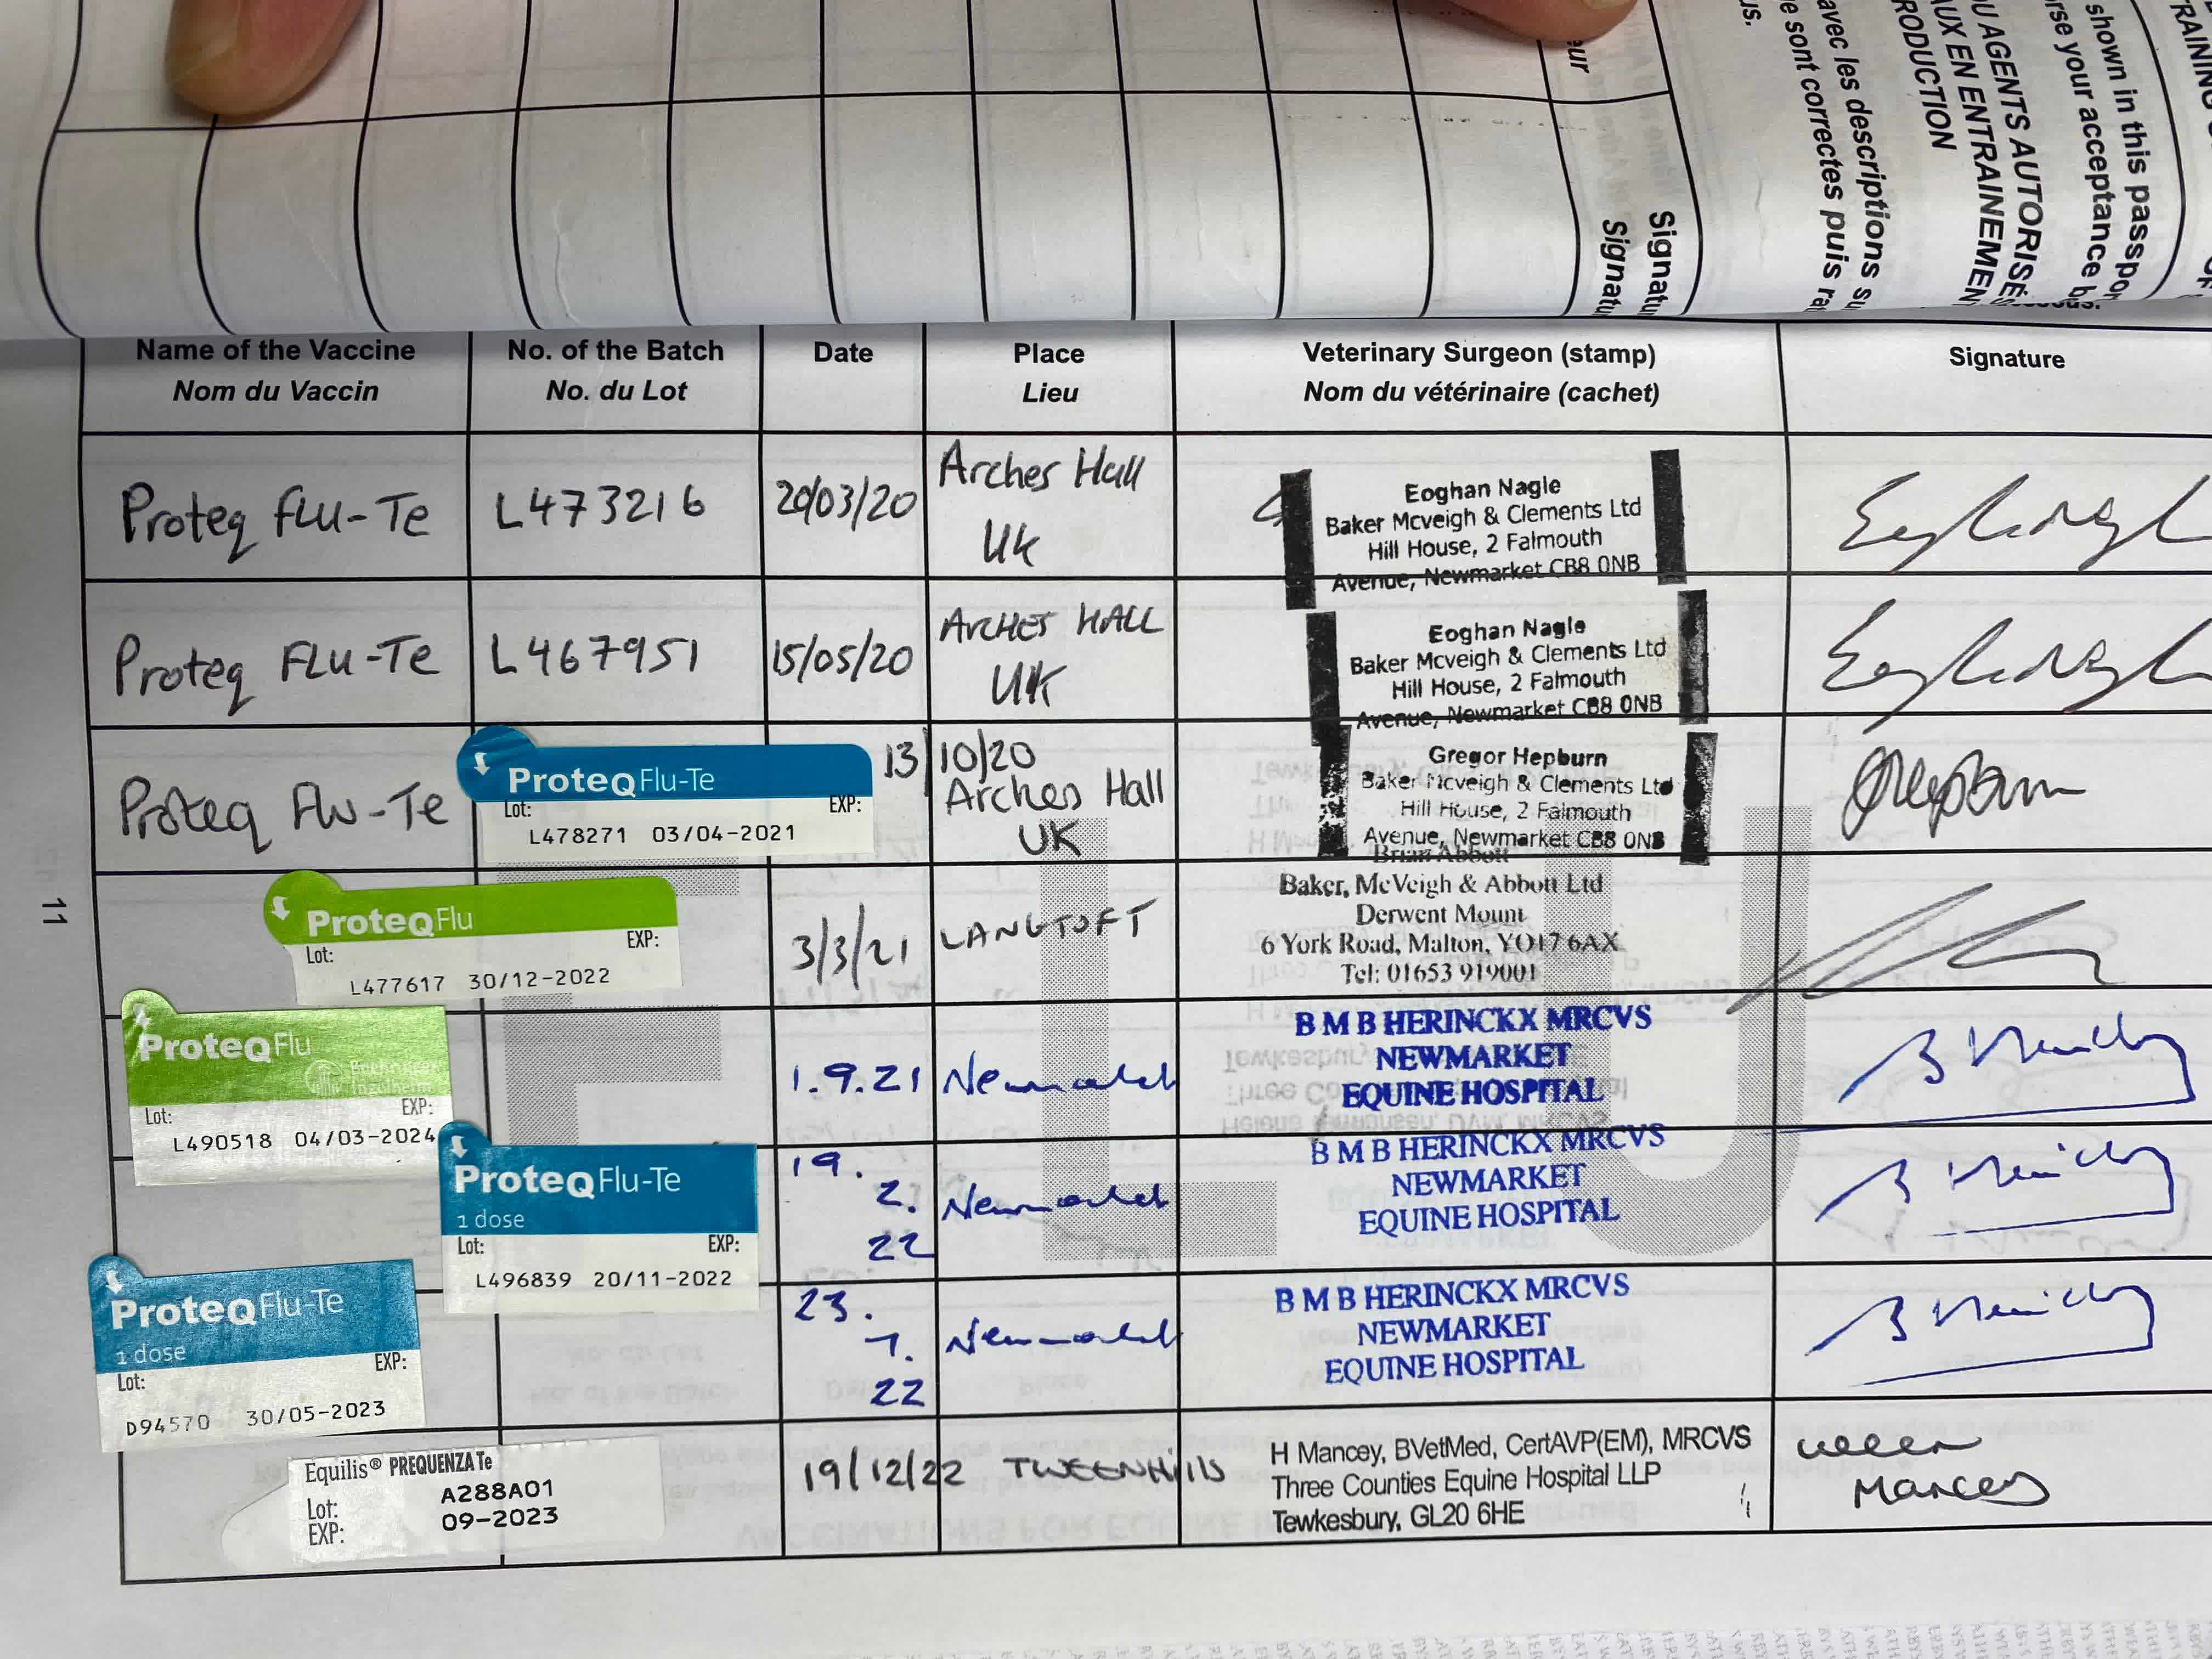 eur
Signatu
Signatu
us.
avec les descriptions su
e sont correctes puis ra
U AGENTS AUTORISÉS
AUX EN ENTRAINEMEN
RODUCTION
shown in this passpor
rse your acceptance b
TRAINING
Name of the Vaccine
Nom du Vaccin
No. of the Batch
No. du Lot
Date
Place
Lieu
Veterinary Surgeon (stamp)
Nom du vétérinaire (cachet)
Signature
Proteq FLU-Te
L473216
20/03/20
Arches Hall
UK
Eoghan Nagle
Baker Mcveigh & Clements Ltd
Hill House, 2 Falmouth
Avenue, Newmarket CB8 0NB
Proteq FLU-Te
L467951
15/05/20
ARCHES HALL
UK
Eoghan Nagle
Baker Mcveigh & Clements Ltd
Hill House, 2 Falmouth
Avenue, Newmarket CB8 0NB
Proteq Flu-Te
ProteqFlu-Te
Lot: EXP:
L478271 03/04-2021
13/10/20
Arches Hall
UK
Gregor Hepburn
Baker Mcveigh & Clements Ltd
Hill House, 2 Falmouth
Avenue, Newmarket CB8 0NB
ProteqFlu
Lot: EXP:
L477617 30/12-2022
3/3/21
LANGTOFT
Brian Abbott
Baker, McVeigh & Abbott Ltd
Derwent Mount
6 York Road, Malton, YO17 6AX
Tel: 01653 919001
ProteqFlu
Boehringer
Ingelheim
Lot: EXP:
L490518 04/03-2024
1.9.21
Newmarket
B M B HERINCKX MRCVS
NEWMARKET
EQUINE HOSPITAL
ProteqFlu-Te
1 dose
Lot: EXP:
L496839 20/11-2022
19.
2.
22
Newmarket
B M B HERINCKX MRCVS
NEWMARKET
EQUINE HOSPITAL
ProteqFlu-Te
1 dose
Lot: EXP:
D94570 30/05-2023
23.
7.
22
Newmarket
B M B HERINCKX MRCVS
NEWMARKET
EQUINE HOSPITAL
Equilis® PREQUENZA Te
Lot: A288A01
EXP: 09-2023
19/12/22
TWEENHILLS
H Mancey, BVetMed, CertAVP(EM), MRCVS
Three Counties Equine Hospital LLP
Tewkesbury, GL20 6HE
Mancey
11